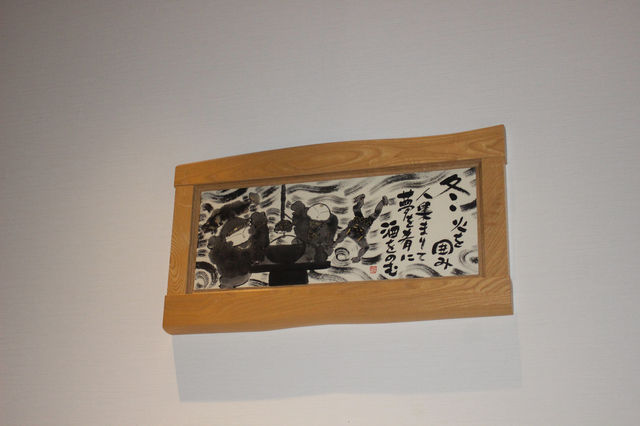 冬 火を囲み
人集まりて
夢を肴に
酒をのむ